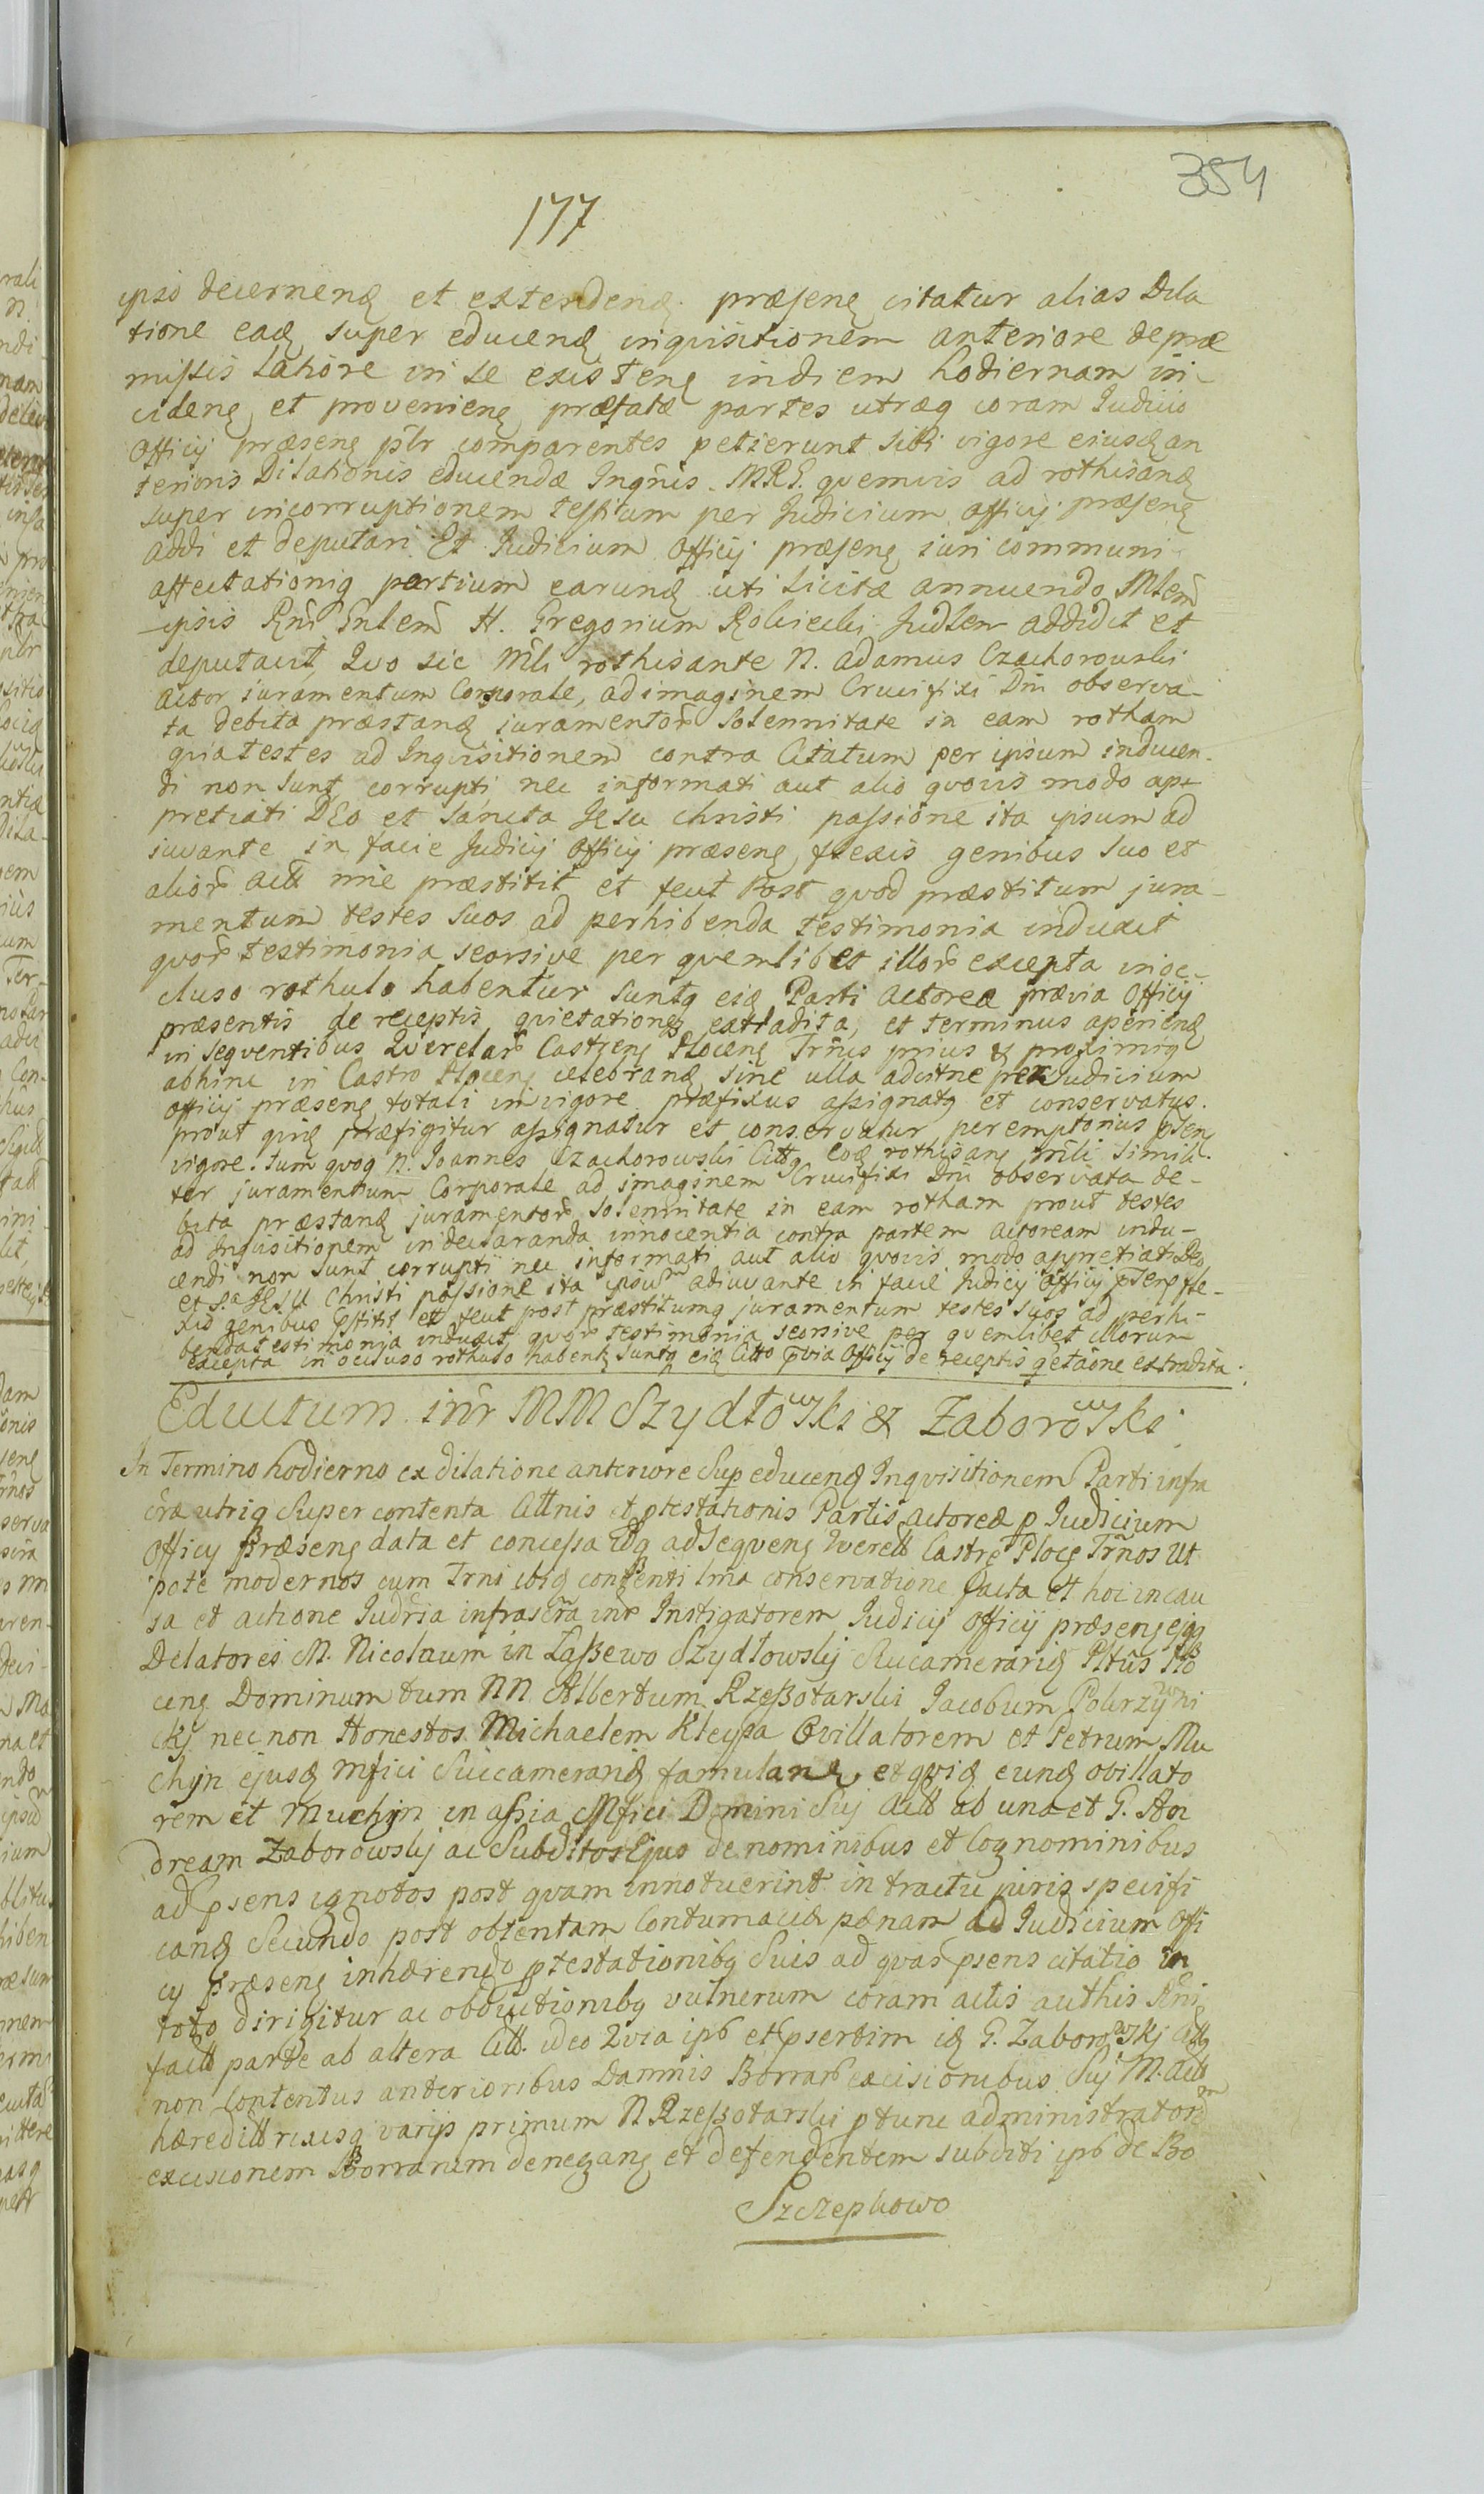 354
177
ipso decernend et extendend præsens citatur alias Dila
tione ead super educend inquisitionem anteriore de præ
missis latiore in se existens in diem hodiernam in-
cidens et proveniens præfatæ partes utræq coram Judicio
Officij præsens plr comparentes petierunt sibi vigore eiusd an
terioris Dilationis educendæ Inqnis. MRG. quemvis ad rothisand
super incorruptionem testium per Judicium officij præsens
addi et deputari Et Judicium Officij præsens juri communi
affectationiq partium earund uti licitæ annuendo Mlem
ipsis Rni Gnlem H. Gregorium Robiecki Judlem addidit et
deputavit, Quo sic mli rothisante N. Adamus Czachorowski
Actor juramentum Corporale, ad imaginem Crucifixi Dni observa-
ta debita præstand juramentor solennitate in eam rotham
quia testes ad Inquisitionem contra Citatum per ipsum inducen-
di non sunt corrupti nec informati aut alio quovis modo ap-
pretiati DEo et sancta Jesu Christi passione ita ipsum ad
iuvante in facie Judicij Officij præsens flexis genibus suo et
alior act nne præstitit et fecit Post quod præstitum jura-
mentum testes suos ad perhibenda testimonia induxit
quor testimonia seorsive per quemlibet illor excepta in oc-
cluso rothulo habentur suntq eid Parti Actoreæ prævia Officij
præsentis de receptis quietatione extradita, et terminus aperiend
in sequentibus Querelar Castrens Plocens Trnis prius & proximiq
abhinc in Castro Plocens celebrand sine ulla adcitne per Judicium
officij præsens totali in vigore præfixus assignatq et conservatus.
prout quid præfigitur assignatur et conservatur peremptorius psens
vigore. tum quoq N. Joannes Czachorowski Cittq eod rothisans mli simili-
ter juramentum Corporale ad imaginem Crucifixi Dni observata de-
bita præstand juramentor solennitate in eam rotham prout testes
ad Inquisitionem in declaranda innocentia contra partem actoream indu-
cendi non sunt corrupti nec informati aut alio quovis modo appretiati Deo
et S.a JESU Christi passione ita ipsum adiuvante in facie Judicij officij psens fle-
xis genibus pstitit et fecit post præstitumq juramentum testes suos ad perhi-
benda testimonia induxit quor testimonia seorsive per quemlibet illorum
excepta in occluso rothulo habentq suntq eid Citto pvia Officij de receptis qetaone extradita.
Eductum intr MM Szydłowski & Zaborowski
In Termino hodierno ex dilatione anteriore Sup educend Inquisitionem Parti infra
scræ utriq Super contenta Cittnis et ptestationis Partis actoreæ p Judicium
Officij Præsens data et concessa Idq ad Sequens Querell Castre Ploce Trnos Ut
pote modernos cum Trni ibid contenti lma conservatione facta et hoc in cau
sa et actione Judria infrascra intr Instigatorem Judicij Officij præsens ejqq
Delatores M. Nicolaum in Laßewo Szydłowskj Succamerarid Pltûs Plo
cens Dominum tum NN. Albertum Rzeßotarski Jacobum Pokrzywni
ckj necnon Honestos Michaelem Kleypa Ovillatorem et Petrum Mu
chyn ejusd Mfici Succamerarid famuland, et quid eund ovillato
rem et Muchyn in assia Mfici Domini Suj Actt ab una et G. An
dream Zaborowskj ac Subditos Ejus de nominibus et Cognominibus
ad psens ignotos post quam innotuerint in tractu juris specifi
cand Secundo post obtentam Contumaciæ pænam ad Judicium Offi
cij Præsens inhærendo ptestationibq Suis ad quas psens citatio in
toto dirigitur ac obductionibq vulnerum coram actis authis Rni
factt parte ab altera Citt. ideo Quia ips et psertim id G. Zaborowskj Cittq
non Contentus anterioribus Damnis Borrar excisionibus Suj M. Actt
hæreditt rixisq varijs primum N Rzeßotarski ptunc administratorem
excisionem Borrarum denegans et defendentem subditi ips de Bo
Szczepkowo